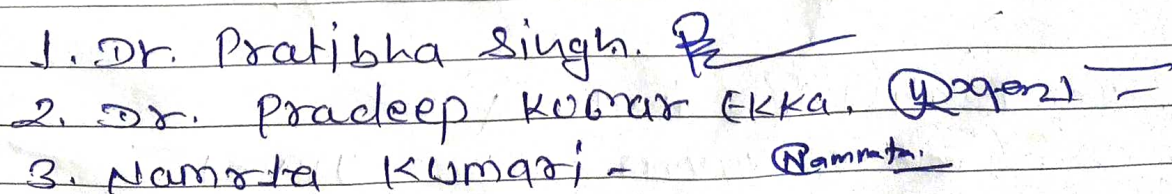 1. Dr. Pratibha Singh.
2. Dr. Pradeep Kumar Ekka.
3. Namrta Kumari - Namrata.